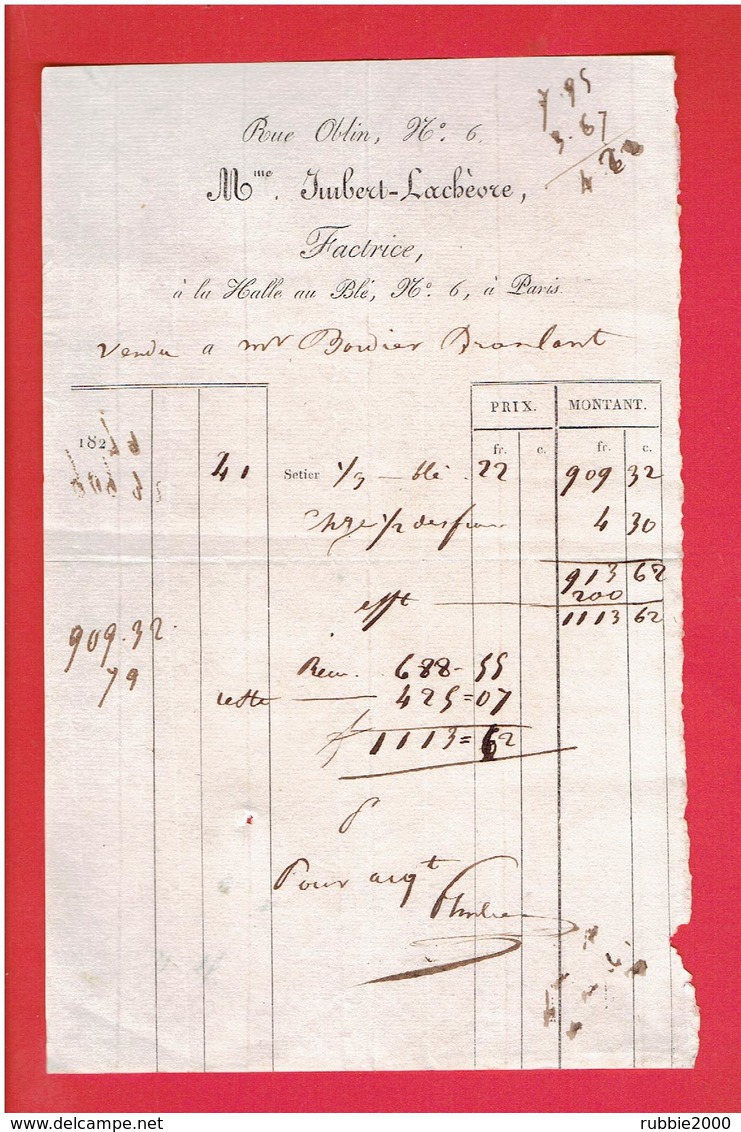 7.95
3.67
4.28
Rue Oblin, N.º 6.
M.me Imbert-Lachèvre,
Factrice,
à la Halle au Blé, N.º 6, à Paris
Vendu a mr Bordier
PRIX. MONTANT.
182
fr. c. fr. c.
41 Setier 1/3 — blé . 22 909 32
1/2 4 30
913 62
efft 200
1113 62
909.32.
79
Recu .. 688-55
reste — 425=07
1113=62
Pour arqt
rubbie2000